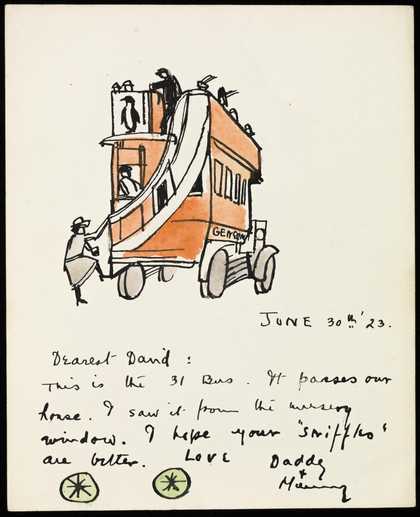 GENERAL
JUNE 30th '23.
Dearest David :
This is the 31 Bus. It passes our
house. I saw it from the nursery
window. I hope your "sniffles"
are better. Love Daddy
+
Mummy